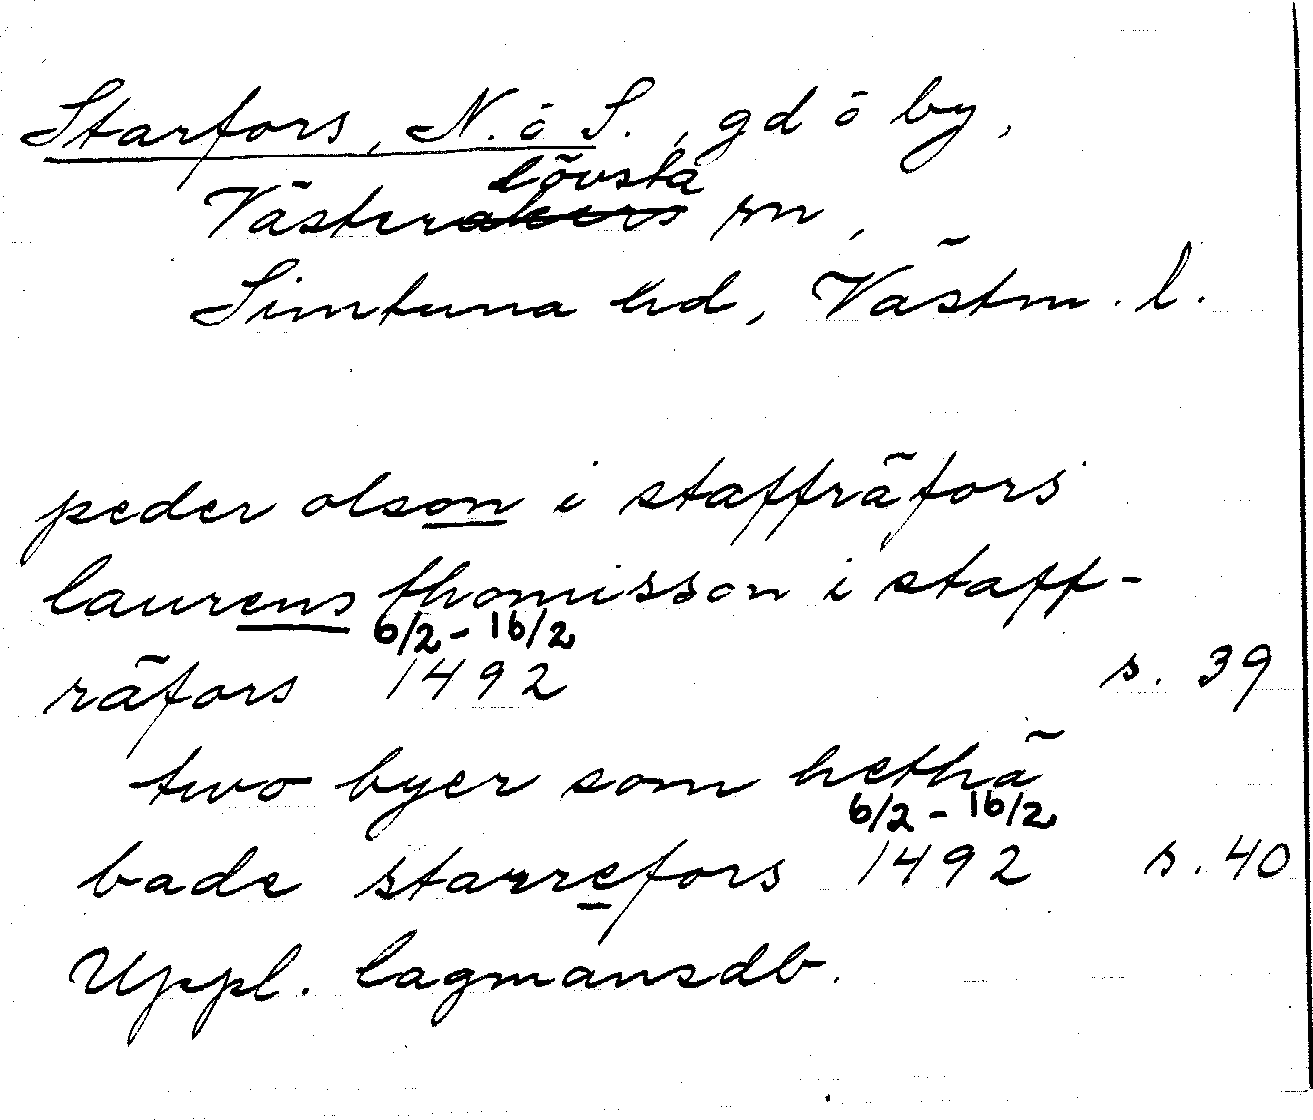 Starfors, N. o S., gd o by,
Västerlövsta sn,
Simtuna hd, Västm. l.
peder olson i staffräfors
laurens thomisson i staff-
räfors 6/2 - 16/2 1492 s. 39
two byer som hethä
bade starrefors 6/2 - 16/2 1492 s. 40
Uppl. lagmansdb.